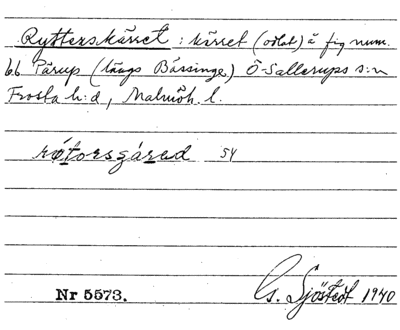 Rytterskärret : kärret (odlat) å fig num.
66 Pärup (längs Bässinge) Ö-Sallerups s:n
Frosta h:d, Malmöh. l.
54
Nr 5573. G. Sjöstedt 1940